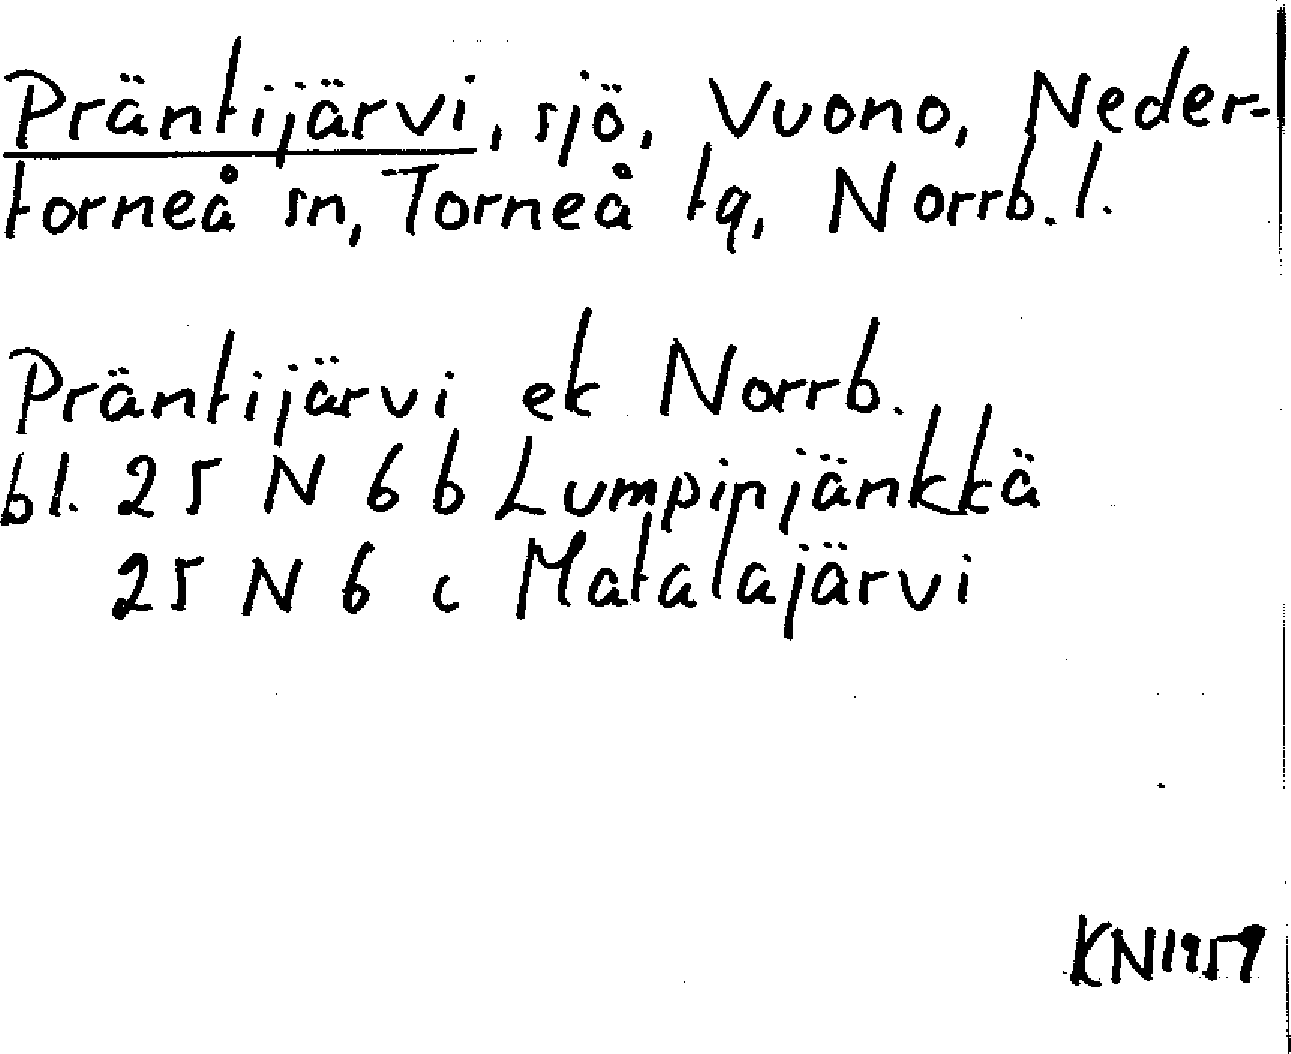 Präntijärvi, sjö, Vuono, Neder-
torneå sn, Torneå tg, Norrb. l.
Präntijärvi ek Norrb.
bl. 25 N 6 b Lumpinjänkkä
25 N 6 c Matalajärvi
KN 1959